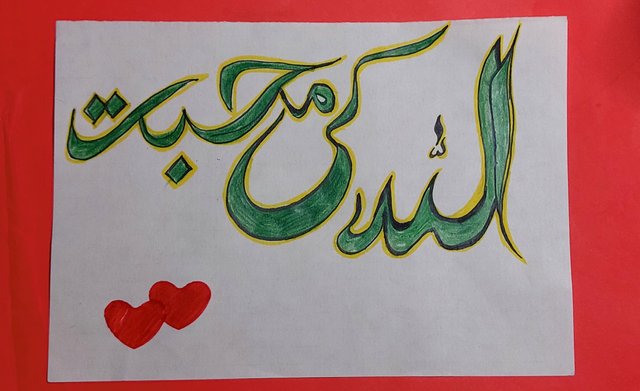 اللہ کی محبت